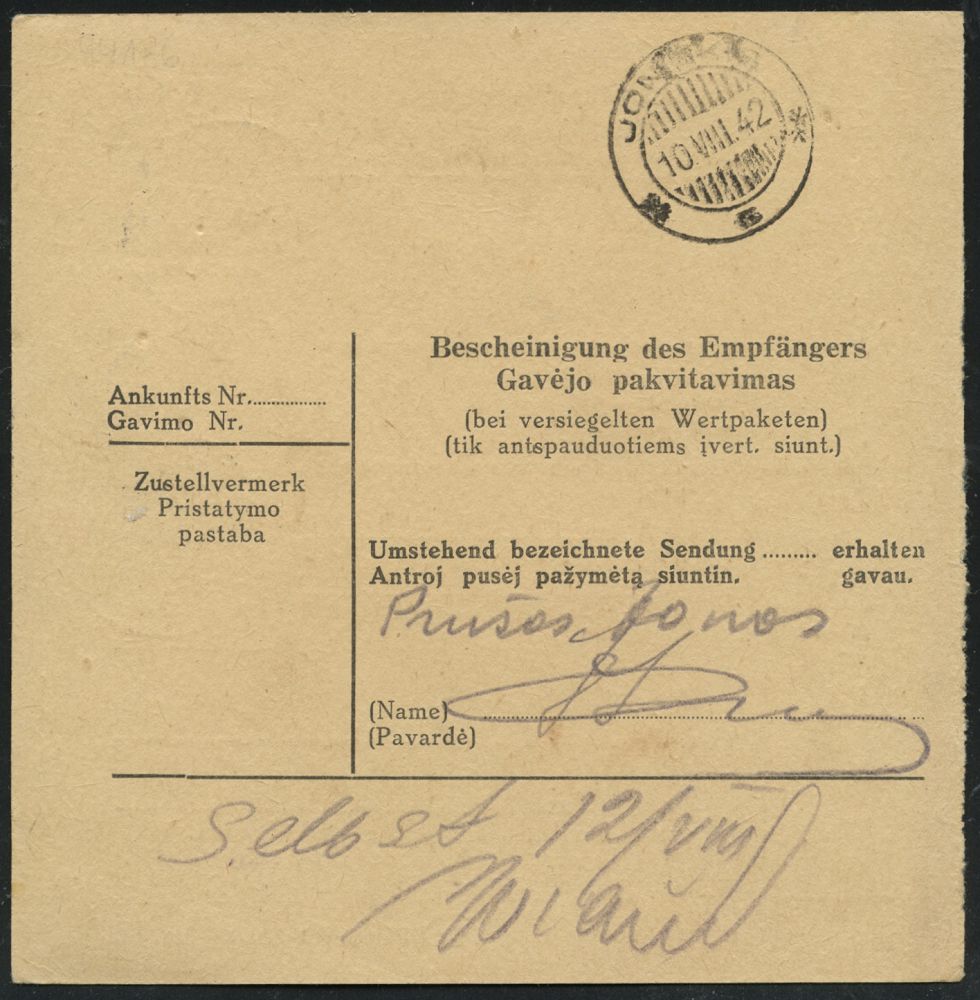 10.VIII.42
Bescheinigung des Empfängers
Gavėjo pakvitavimas
(bei versiegelten Wertpaketen)
(tik antspauduotiems įvert. siunt.)
Ankunfts Nr...............
Gavimo Nr.
Zustellvermerk
Pristatymo
pastaba
Umstehend bezeichnete Sendung ......... erhalten
Antroj pusėj pažymėtą siuntin. gavau.
Prušas Jonas
(Name)
(Pavardė)
Selbst 12/VIII